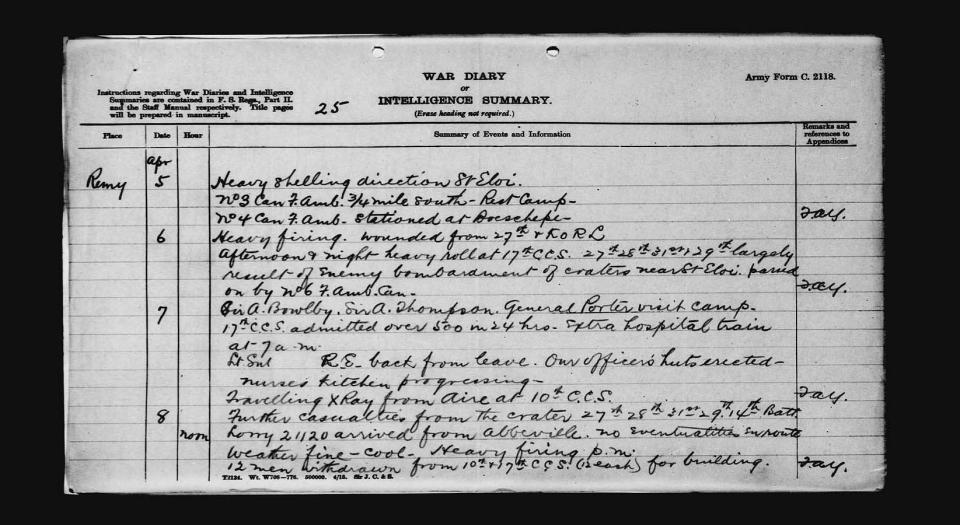 WAR DIARY
or
INTELLIGENCE SUMMARY.
(Erase heading not required.)
Army Form C. 2118.
Instructions regarding War Diaries and Intelligence
Summaries are contained in F. S. Regs., Part II.
and the Staff Manual respectively. Title pages
will be prepared in manuscript.
25
Place Date Hour Summary of Events and Information Remarks and references to Appendices
Apr
Remy 5 Heavy shelling direction St Eloi.
No 3 Can F. Amb. 3/4 mile south - Rest Camp -
No 4 Can F. Amb - stationed at Boeschepe -
6 Heavy firing. wounded from 27th & K O R L
Afternoon & night heavy roll at 17th C.C.S. 27th 28th 31st & 29th largely
result of enemy bombardment of craters near St Eloi. passed
on by No 6 F. Amb. Can.
7 Sir A. Bowlby. Sir A. Thompson. General Porter visit camp -
17th C.C.S. admitted over 500 in 24 hrs. Extra hospital train
at 7 a.m.
Lt R.E. back from leave. Our officers huts erected -
nurses kitchen progressing -
Travelling X Ray from Aire at 10th C.C.S.
8 Further casualties from the crater 27th 28th 31st 29th 14th Batt.
noon Lorry 21120 arrived from Abbeville. no eventualities enroute
Weather fine - cool - Heavy firing p.m.
12 men withdrawn from 10th & 17th C.C.S. (6 each) for building.
T2134. Wt. W708-776. 500000. 4/15. Sir J. C. & S.